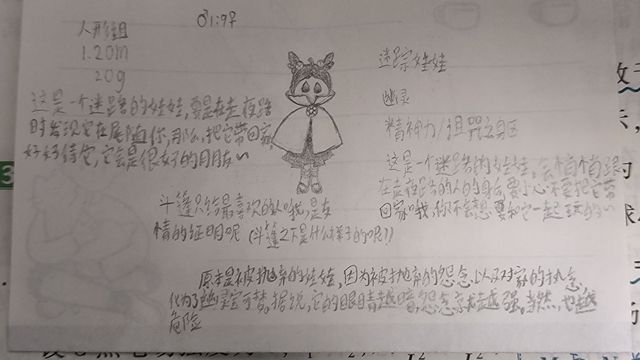 ♂1:9♀
人形组
1.20m
20g
这是一个迷路的娃娃,要是在走夜路
时发现它在尾随你,那么,把它带回家
好好待它,它会是很好的朋友~
迷踪娃娃
幽灵
精神力/诅咒之身区
这是一个迷路的娃娃,会悄悄跟
在走夜路的人的身后,要小心不要把它带
回家哦,你不会想要和它一起玩的~
斗篷只给最喜欢的人哦,是友
情的证明呢(斗篷之下是什么样子的呢!)
原本是被抛弃的娃娃,因为被抛弃的怨念以及对家的执念,
化为了幽灵宝可梦,据说,它的眼睛越暗,怨念就越强,当然,也越
危险